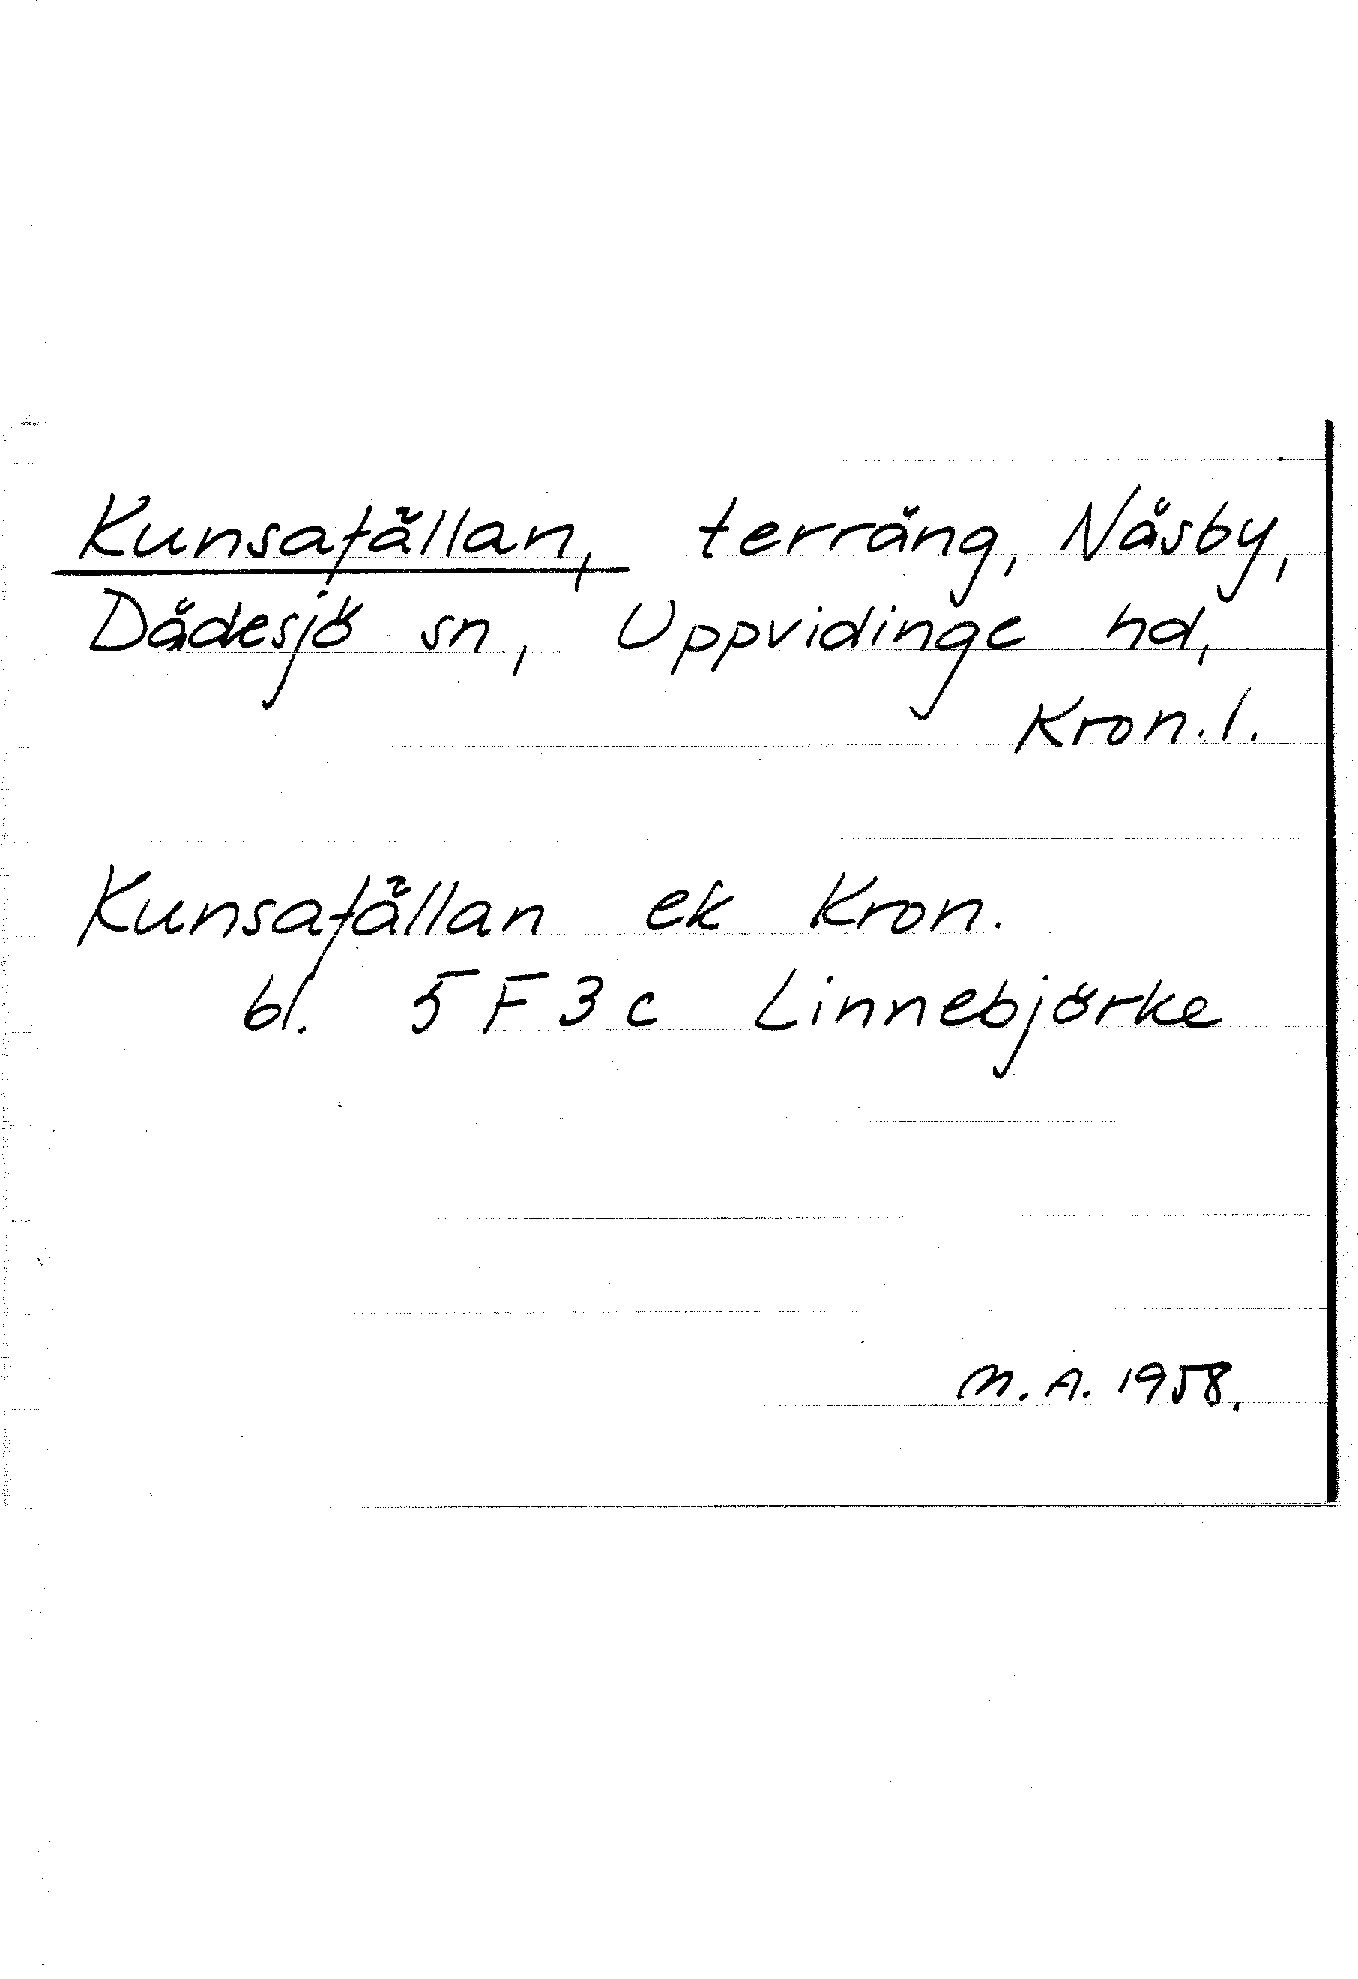 Kunsafällan, terräng, Näsby,
Dädesjö sn, Uppvidinge hd,
Kron.l.
Kunsafällan ek Kron.
bl. 5 F 3 c Linnebjörke
M.A. 1958.